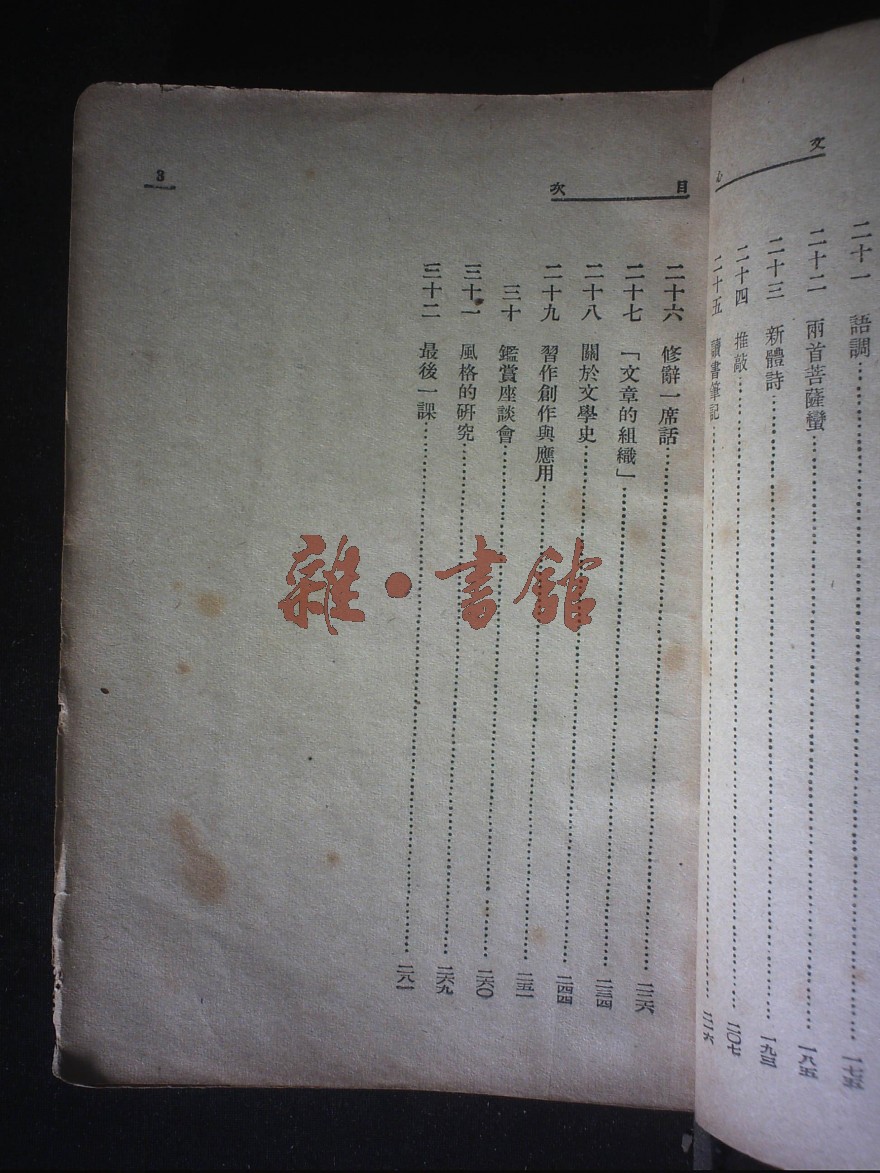 文心
二十一　語調……一七五
二十二　兩首菩薩蠻……一八五
二十三　新體詩……一九三
二十四　推敲……二〇七
二十五　讀書筆記……二一六
目次
二十六　修辭一席話……二二六
二十七　「文章的組織」……二三四
二十八　關於文學史……二四四
二十九　習作創作與應用……二五一
三十　鑑賞座談會……二六〇
三十一　風格的研究……二六九
三十二　最後一課……二八一
3
雜·書館